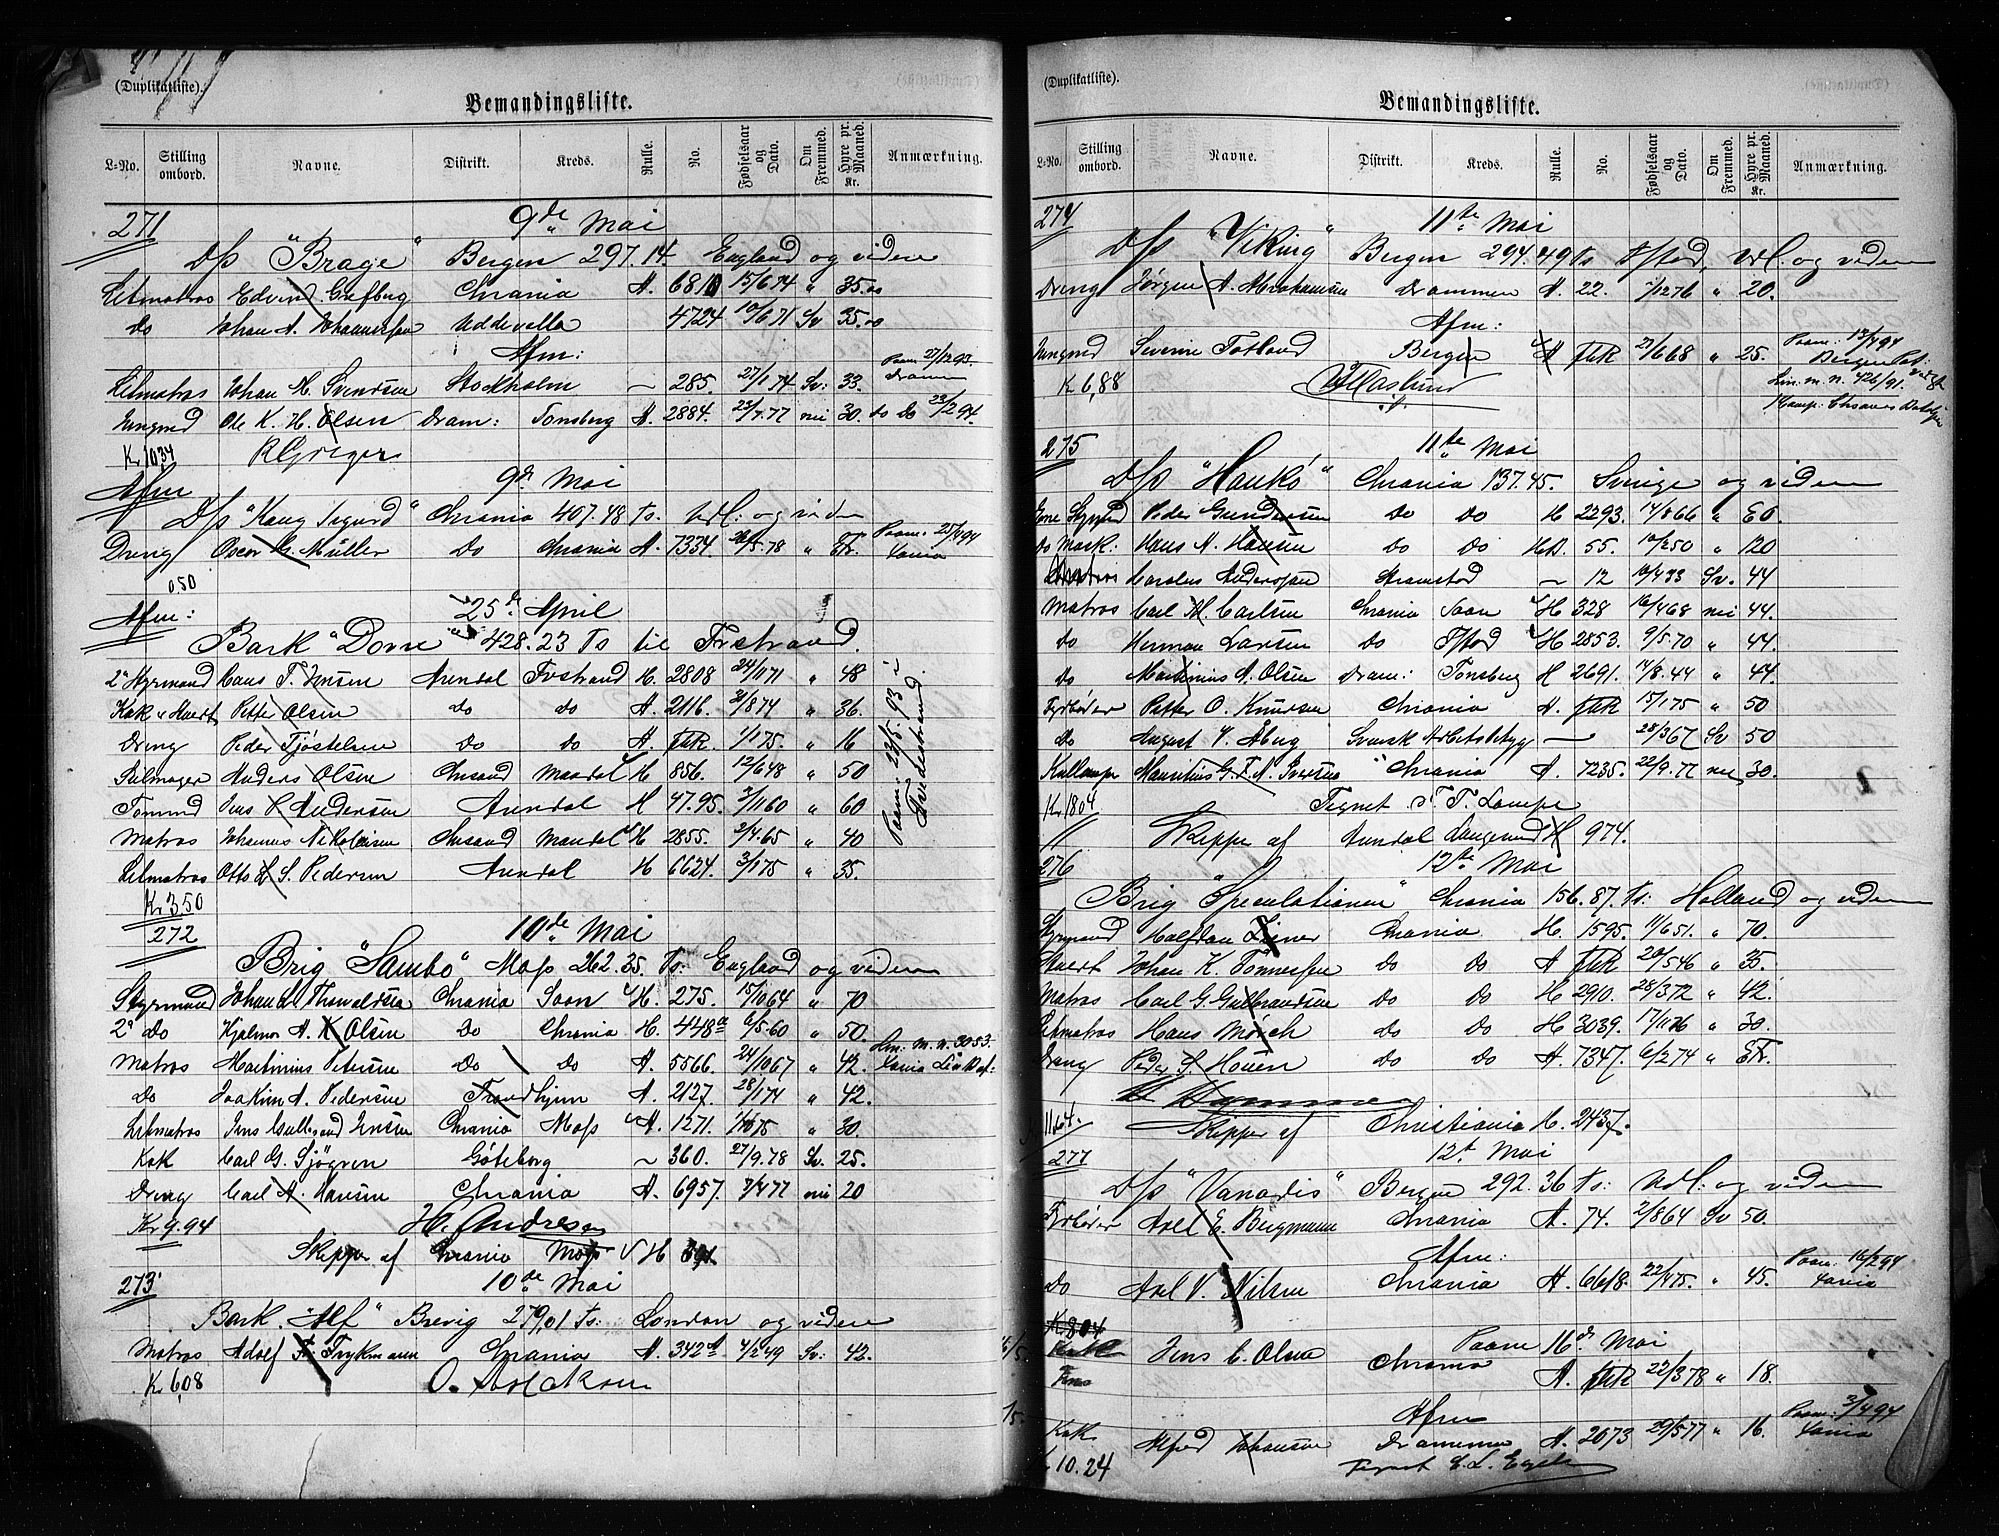 (Duplikatliste).
Bemandingsliste.
L-No. Stilling ombord. Navne. Distrikt. Kreds. Rulle. No. Fødselsaar og Dato. Om Fremmed. Hyre pr. Maaned. Kr. Anmærkning.
271 9de Mai
D/s "Brage" Bergen 297.14. England og videre
Letmatros Edvind Chrania A. 6810 15/6 74 " 35.00
Do Johan A. Johannesen Uddevalla 4724 10/6 71 Sv 35.00
Afm:
Letmatros Johan M. Svendsen Stockholm — 285. 27/1 74 Sv: 33. Paam: 27/12 93. Dramen
Jungmd Ole K. H. Olsen Dram: Tonsberg A. 2884. 23/7. 77 nei 30. do Do 23/2 94.
Kr 10,34
Afm 9de Mai
D/s "Kong Sigurd" Chrania 407.48 Ts. Udl: og viden
Dreng Oscar G. Müller Do Chrania A. 7334 /5.78 " Paam: 25/1 94 Xania
0.50
Afm: 25de April
Bark "Dovre" 428.23 Ts til Tvstrand.
2. Styrmand Claus T. Jensen Arendal Tvstrand H. 2808 24/11 71 " 48
Kok & Stuert Petter Olsen do do A. 2116. 31/8 74 " 36.
Dreng Peder Tjöstelsen Do do A. ftk. 1/1 75. " 16
Seilmager Anders Olsen Chrsand Mandal H 856. 12/6 48 " 50
Tömmd Jens Andersen Arendal H 47.95. 3/11 60 " 60
Matros Johannes Nikolaisen Chrsand Mandal H 2855. 2/4.65 " 40
Letmatros Otto S. Pedersen Arendal H 6624. 3/1 75 " 35.
Paam: 23/5. 93 i Tvedestrand
Kr 3.50
272 10de Mai
Brig "Sambo" Moss 262.35. Ts: England og viden
Styrmand Johan Thorvaldsen Chrania Soon H. 275. 15/10 64 " 70
2. do Hjalmar A. Olsen Do Chrania H. 448 6/5.60 " 50.
Matros Martinius Petersen Do Do A. 5566. 24/10 67 " 42. m. n. 3053. Xania
Do Joakim A. Pedersen Trondhjem A. 2127. 28/1 74 " 42.
Letmatros Jens Gulbrand Jensen Chrania Moss A. 1271. 75 " 30.
Kok Carl G. Sjögren Göteborg — 360. 27/9.78 Sv. 25.
Dreng Carl A. Hansen Chrania A. 6957. 7/4 77 nei 20
Kr 9.94 H. Andresen
Skipper af Chrania Moss H 391.
273 10de Mai
Bark "Alf" Brevig 279,01 Ts: London og viden
Matros Adolf Trykmann Chrania A. 342 4/2 49 Sv: 42.
Kr 6,08
(Duplikatliste).
Bemandingsliste.
L-No. Stilling ombord. Navne. Distrikt. Kreds. Rulle. No. Fødselsaar og Dato. Om Fremmed. Hyre pr. Maaned. Kr. Anmærkning.
274 11te Mai
D/s "Viking" Bergen 294.49 Ts Fstad, Udl. og viden
Dreng Jørgen A. Abrahamsen Drammen A. 22. /12 76 " 20.
Afm:
Jungmd Severin Totland Bergen A ftk 27/6 68 " 25. Paam: 13/4 94 Bergen
Kr 6,88 Haslund m. n. 426/91.
275 11te Mai
D/s "Hankö" Chrania 137.45. Sverige og viden
Ene Styrmd Peder Gundersen Do Do H 2293. 14/8 66 " 80.
Do Mask: Hans A. Hansen Do Do HD. 55. 12/2 50 " 120
Carolus Anderssen Strømstad — 12 10/4 33 Sv. 44
Matros Carl M. Carlsen Chrania Soon H 328 16/4 68 nei 44.
Do Herman Larsen Do Fstad H 2853. 9/5.70 " 44.
Do Martinius A. Olsen Dram: Tonsberg H 2691. 14/8.44 " 44.
Fyrböter Petter O. Knudsen Chrania A. ftk 15/1 75 " 50
Do August V. Åberg Svensk Arbeitsbetyg — 28/3 67 Sv 50
Kullemper Mauritius G. F. A. Iversen Chrania A. 7235. 22/9.77 nei 30.
Kr 18.04 Tegnet T. Lampe
Skipper af Arendal Langesund H 974.
276 12te Mai
Brig "Speculationen" Chrania 156.87. Ts: Holland og viden
Styrmand Halfdan Chrania H. 1595. 11/6 51. " 70.
Stuert Johan K. Tönnessen Do Do A ftk 20/5 46 " 35.
Matros Carl G. Gulbrandsen Do Do H 2910. 28/3 72 " 42.
Letmatros Hans Mörch Do Do H 3039. 17/11 76 " 30.
Dreng Peder S. Houen Do Do A. 7347. 6/2 74 "
11.64. Skipper af Christiania H. 2437.
277 12te Mai
D/s "Vanadis" Bergen 292.36 Ts: Udl: og viden
Fyrböter Axel E. Bergmann Chrania A. 74. 2/8 64 Sv 50.
Afm:
Do Axel V. Nilsen Chrania A. 6618. 22/4 75. " 45. Paam: 16/2 94 Xania
Kr 8.04
Paam 16de Mai
Jens C. Olsen Chrania A. ftk 22/3 78 " 18.
Afm
Kok Alfred Johansen Drammen A. 2073 29/5 77 " 16. Paam: 3/4 94 Xania
10.24 Tegnet E. L.